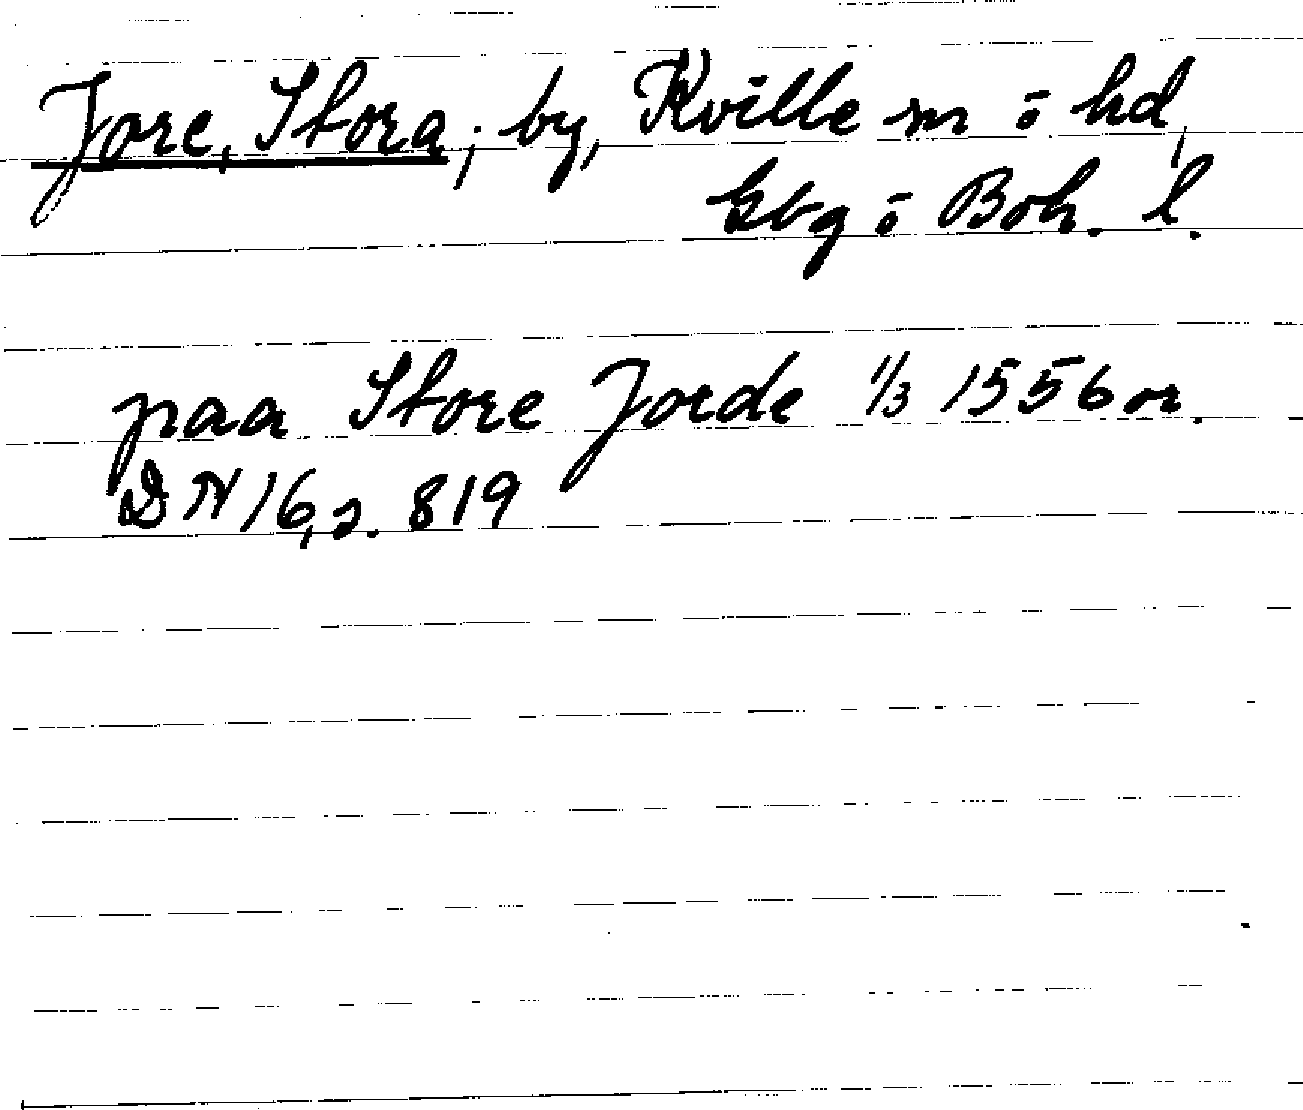 Jore, Stora; by, Kville sn o hd,
Gbg o Boh. l.
paa Store Jorde 1/3 1556 or.
DN 16, s. 819